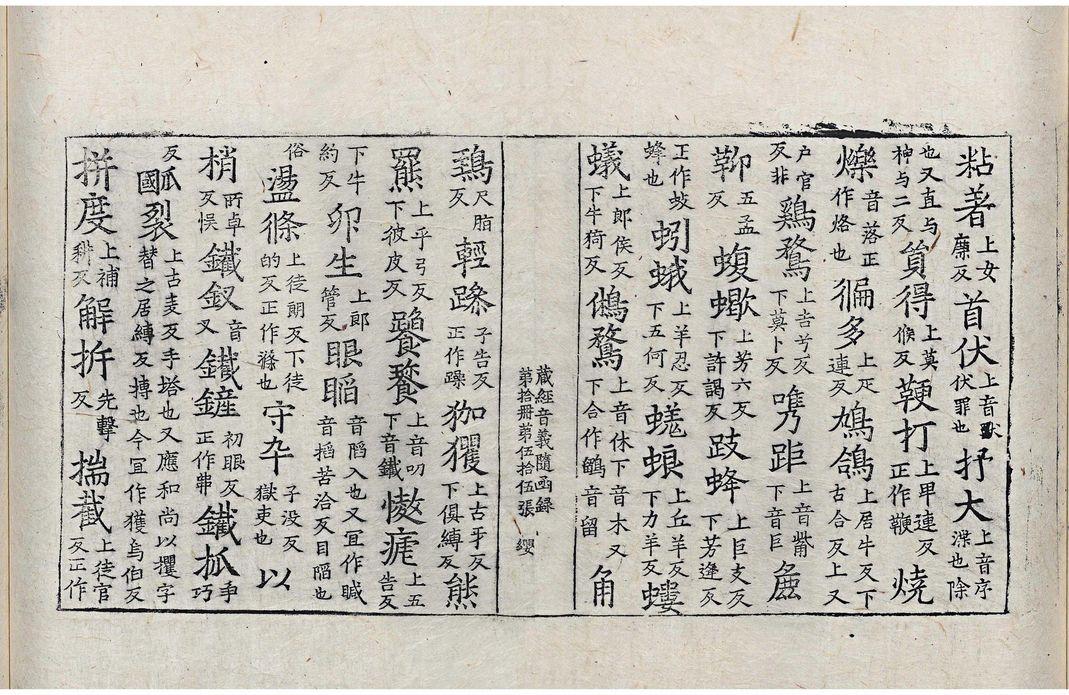 粘著上女廉反首伏上音獸伏罪也抒大上音序渫也除
也又直与神与二反貟得上莫候反鞕打上甲連反正作鞭燒
爍音落正作烙也徧多上疋連反鳩鴿上居牛反下古合反上又
户官反非鷄鶩上吉兮反下莫卜反距上音觜下音巨麁
五孟反蝮蠍上芳六反下許謁反蚑蜂上巨支反下芳逢反
正作蚑蜂也蚓蛾上羊忍反下五何反蜣蜋上丘羊反下力羊反螻
蟻上郎侯反下牛猗反鵂鶩上音休下音木又下合作鶹音留角
藏經音義隨函錄
第拾冊第伍拾伍張 纓
鵄尺脂反輕躁子告反正作躁玃上古牙反下俱縛反熊
羆上乎弓反下彼皮反饕餮上音叨下音鐵上五告反
下牛約反卵生上郎管反眼䀴音䧟入也又宜作䁍音掐苦洽反目陷也
俗盪條上徒朗反下徒的反正作滌也守卒子没反獄吏也以
梢所卓反悮鐵釵音叉鐵鏟初眼反正作丳鐵抓爭巧
反𤓰國裂上古麦反手㨯也又應和尚以攫字替之居縛反搏也今宜作獲烏伯反
拼度上補耕反解㭊先擊反揣截上徒官反正作